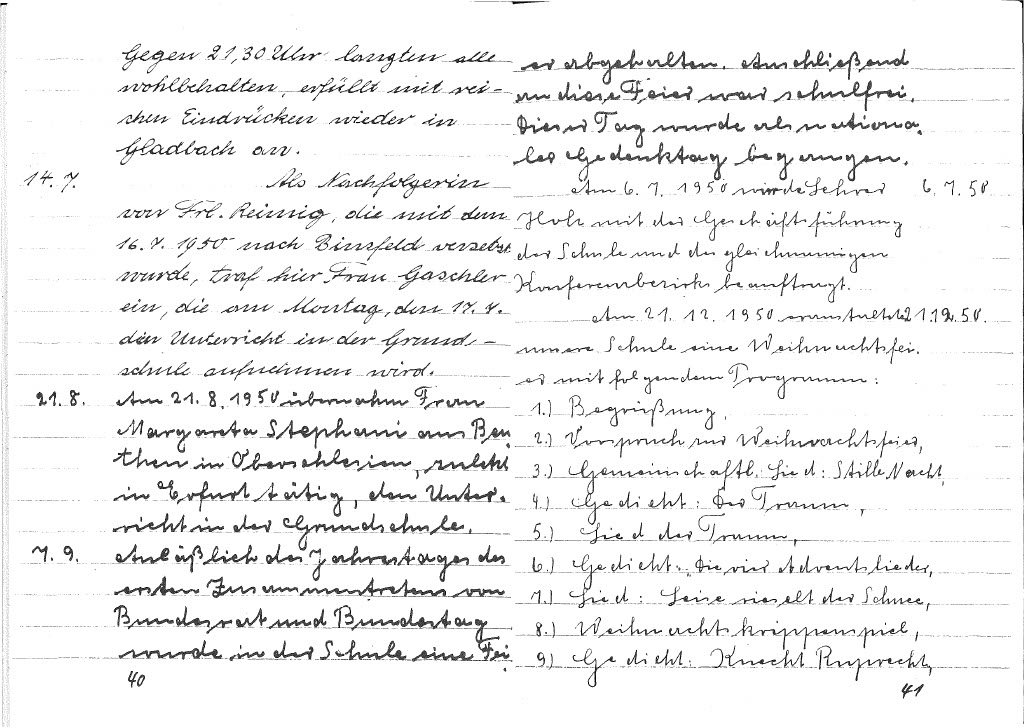 Gegen 21,30 Uhr langten alle
wohlbehalten, erfüllt mit rei-
chen Eindrücken wieder in
Gladbach an.
14.7. Als Nachfolgerin
von Frl. Reimig, die mit dem
16.7.1950 nach Binsfeld versetzt
wurde, traf hier Frau Gaschler
ein, die am Montag, den 17.7.
den Unterricht in der Grund-
schule aufnehmen wird.
21.8. Am 21.8.1950 übernahm Frau
Margareta Stephani aus Beu
then in Oberschlesien, zuletzt
in Erfurt tätig, den Unter-
richt in der Grundschule.
7.9. Anläßlich des Jahrestages des
ersten Zusammentretens von
Bundesrat und Bundestag
wurde in der Schule eine Fei
40
er abgehalten. Anschließend
an diese Feier war schulfrei.
Dieser Tag wurde als nationa-
ler Gedenktag begangen.
Am 6.7.1950 wurde Lehrer 6.7.50
Holz mit der Geschäftsführung
der Schule und des gleichnamigen
Konferenzbezirks beauftragt.
Am 21.12.1950 veranstaltete 21.12.50.
unsere Schule eine Weihnachtsfei-
er mit folgendem Programm:
1.) Begrüßung,
2.) Vorspruch zur Weihnachtsfeier,
3.) Gemeinschaftl. Lied: Stille Nacht,
4.) Gedicht: Der Traum,
5.) Lied der Traum,
6.) Gedicht: Die vier Adventslieder,
7.) Lied: Leise rieselt der Schnee,
8.) Weihnachtskrippenspiel,
9) Gedicht: Knecht Ruprecht,
41